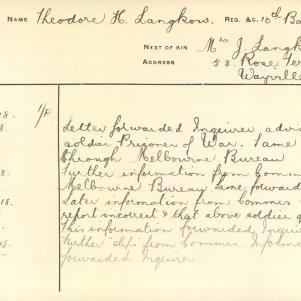 NAME Theodore H. Langkow. REG. &C. 10th Ba
NEXT OF KIN Mrs J. Langk
ADDRESS 53. Rose Ter
Wayvill
8. 1/p Letter forwarded Inquirer advi
soldier Prisoner of War. Same
8. through Melbourne Bureau
Further information from Comm
8. Melbourne Bureau Same forwarded
8. Later information from Commrs
report incorrect & that above soldier
this information forwarded Inquir
18. Further slip from Commrs. Informa
forwarded Inquirer